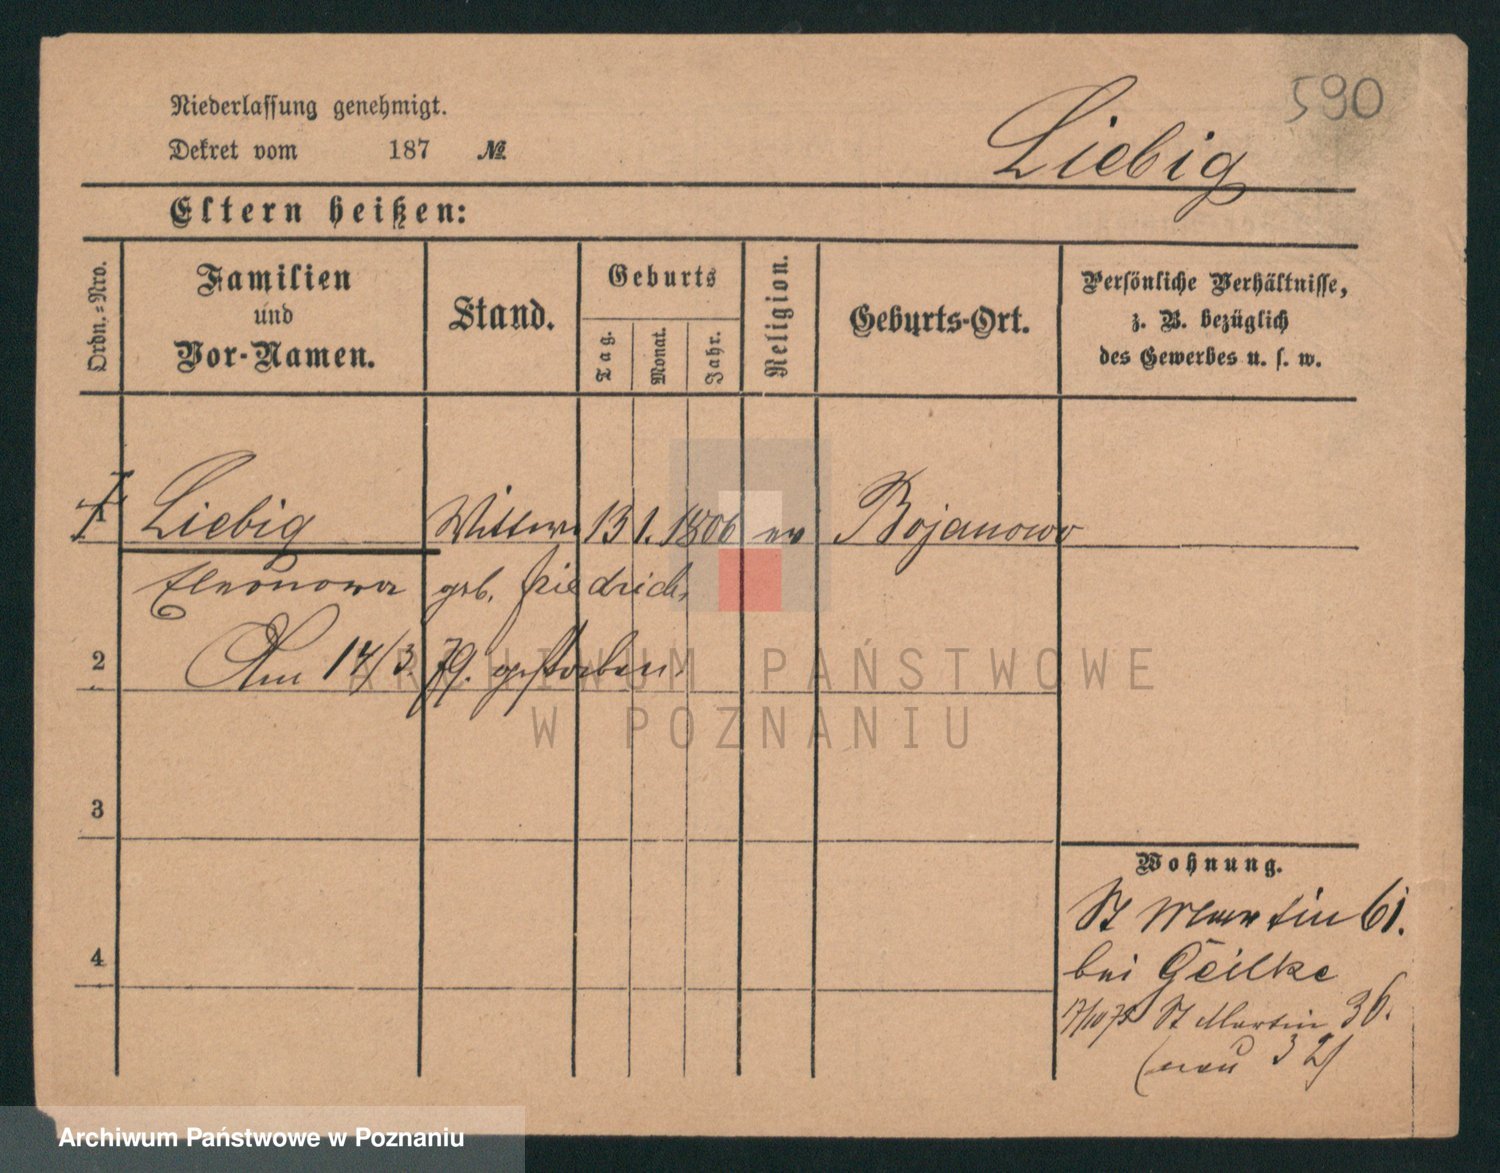 590
Niederlassung genehmigt.
Liebig
Dekret vom 187 №
Eltern heißen:
Ordn.=Nro.
Familien und Vor-Namen.
Stand.
Geburts
Tag.
Monat.
Jahr.
Religion.
Geburts-Ort.
Persönliche Verhältnisse,
z. B. bezüglich
des Gewerbes u. s. w.
1 Liebig Wittwe 13 1. 1806 ev Bojanowo
Eleonora geb. Friedrich
2 Am 14/3 79. gestorben.
3
4
Wohnung.
St Martin 61.
bei Geilke
17/10 75 St Martin 36.
(neu 32)
ARCHIWUM PAŃSTWOWE
W POZNANIU
Archiwum Państwowe w Poznaniu